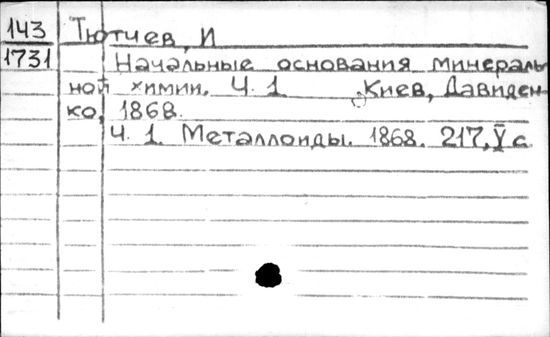 143 Тютчев, И
1731 Начальные основания минераль-
ной химии. Ч. 1 Киев, Давиден-
ко, 1868.
Ч. 1. Металлоиды. 1868. 217, V с.